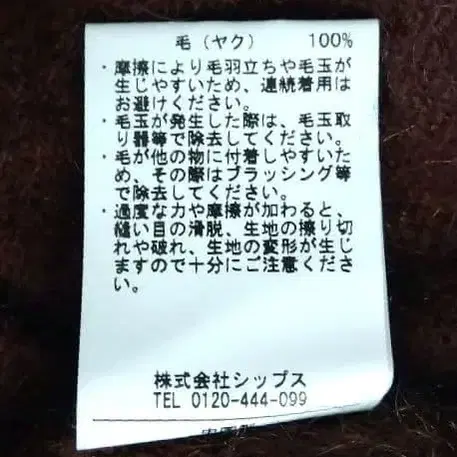 毛（ヤク） 100%
・摩擦により毛羽立ちや毛玉が
生じやすいため、連続着用は
お避けください。
・毛玉が発生した際は、毛玉取
り器等で除去してください。
・毛が他の物に付着しやすいた
め、その際はブラッシング等
で除去してください。
・過度な力や摩擦が加わると、
縫い目の滑脱、生地の擦り切
れや破れ、生地の変形が生じ
ますので十分にご注意くださ
い。
株式会社シップス
TEL 0120-444-099